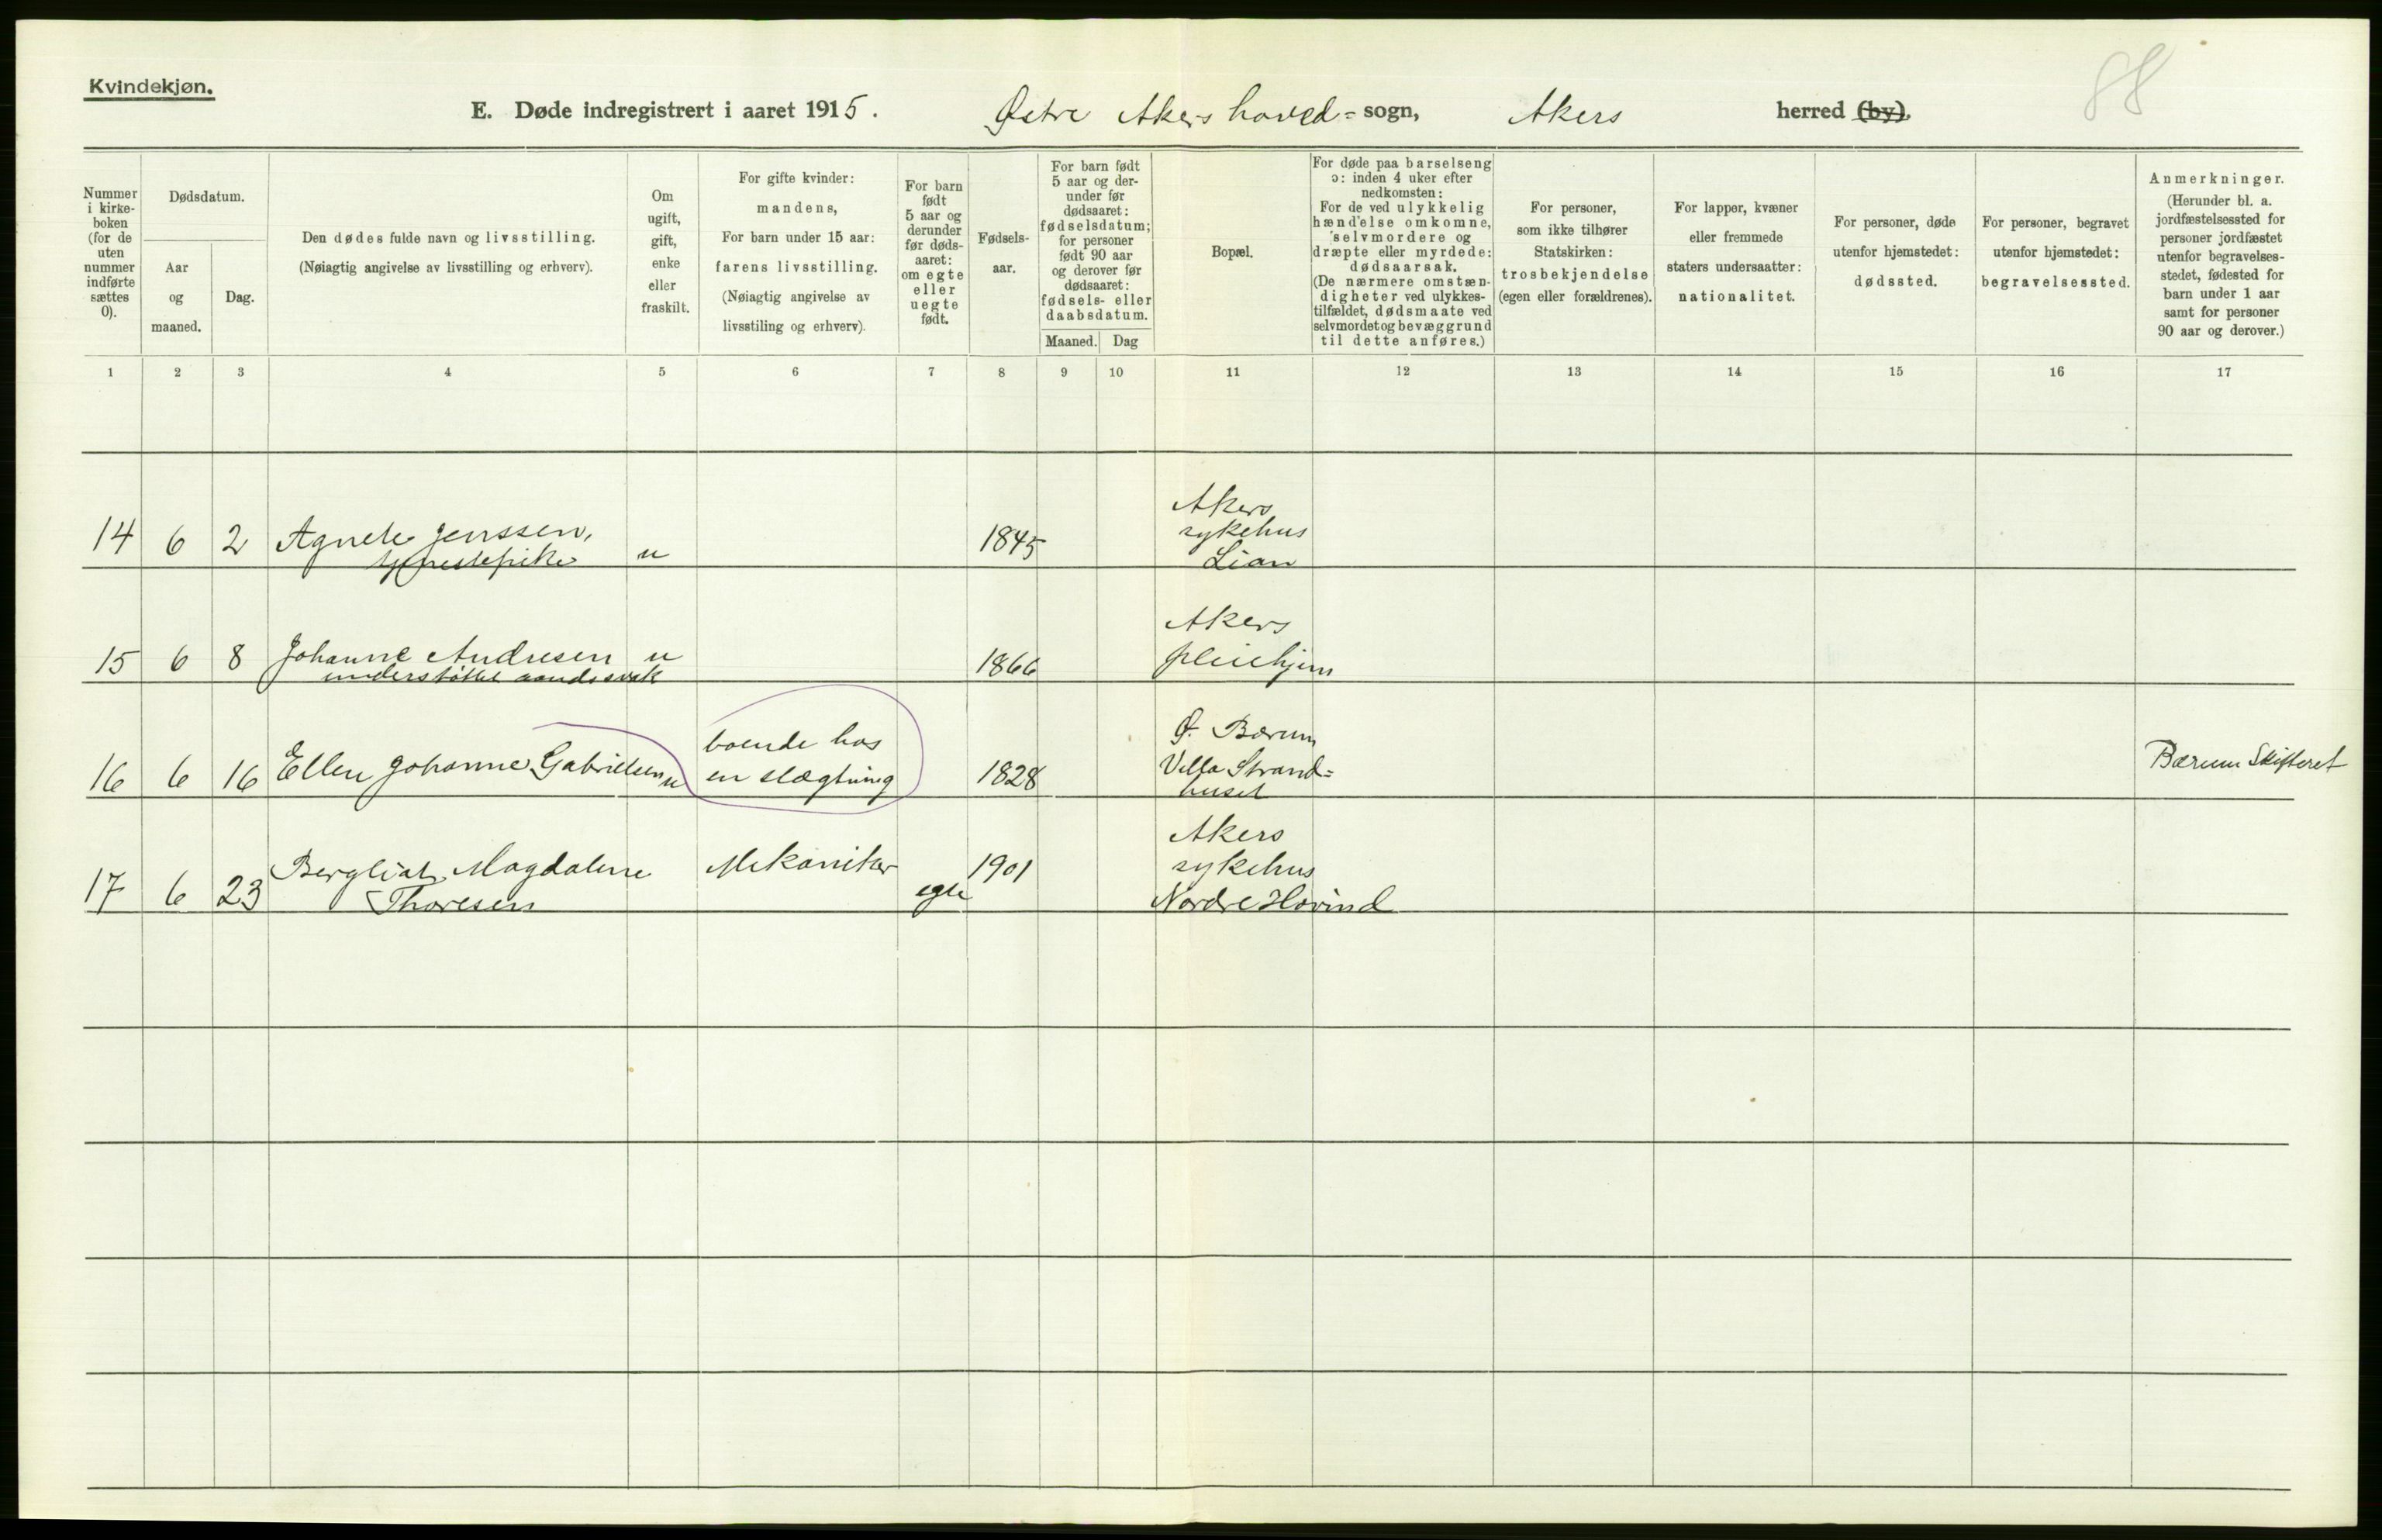 Kvindekjøn.
88
E. Døde indregistrert i aaret 1915. Østre Akers hoved= sogn, Akers herred (by).
Nummer i kirke-boken (for de uten nummer indførte sættes 0).
Dødsdatum.
Aar og maaned.
Dag.
Den dødes fulde navn og livsstilling.
(Nøiagtig angivelse av livsstilling og erhverv).
Om ugift, gift, enke eller fraskilt.
For gifte kvinder:
mandens,
For barn under 15 aar:
farens livsstilling.
(Nøiagtig angivelse av
livsstiling og erhverv).
For barn født 5 aar og derunder før døds-aaret: om egte eller uegte født.
Fødsels-aar.
For barn født 5 aar og der-under før dødsaaret: fødselsdatum; for personer født 90 aar og derover før dødsaaret: fødsels- eller daabsdatum.
Maaned.
Dag
Bopæl.
For døde paa barselseng
ɔ: inden 4 uker efter
nedkomsten:
For de ved ulykkelig
hændelse omkomne,
selvmordere og
dræpte eller myrdede:
dødsaarsak.
(De nærmere omstæn-
digheter ved ulykkes-
tilfældet, dødsmaate ved
selvmordet og bevæggrund
til dette anføres.)
For personer,
som ikke tilhører
Statskirken:
trosbekjendelse
(egen eller forældrenes).
For lapper, kvæner
eller fremmede
staters undersaatter:
nationalitet.
For personer, døde
utenfor hjemstedet:
dødssted.
For personer, begravet
utenfor hjemstedet:
begravelsessted.
Anmerkninger.
(Herunder bl. a.
jordfæstelsessted for
personer jordfæstet
utenfor begravelses-
stedet, fødested for
barn under 1 aar
samt for personer
90 aar og derover.)
1 2 3 4 5 6 7 8 9 10 11 12 13 14 15 16 17
14 6 2 Agnete Jenssen, u 1845
tjenestepike
Akers
sykehus
Lian
15 6 8 Johanne Andresen u 1866
understøttet aandssvak
Akers
pleiehjem
16 6 16 Ellen Johanne Gabrielsen u
boende hos
en slægtning
1828
Ø. Bærum
Villa Strand=
huset
Bærum Skifteret
17 6 23 Bergliot Magdalene
Thoresen
Mekaniker
egte
1901
Akers
sykehus
Nordre Hovind